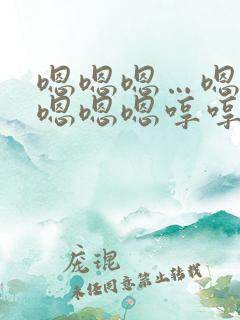 嗯嗯嗯…嗯
嗯嗯嗯哼哼
庞琨
未经同意禁止转载